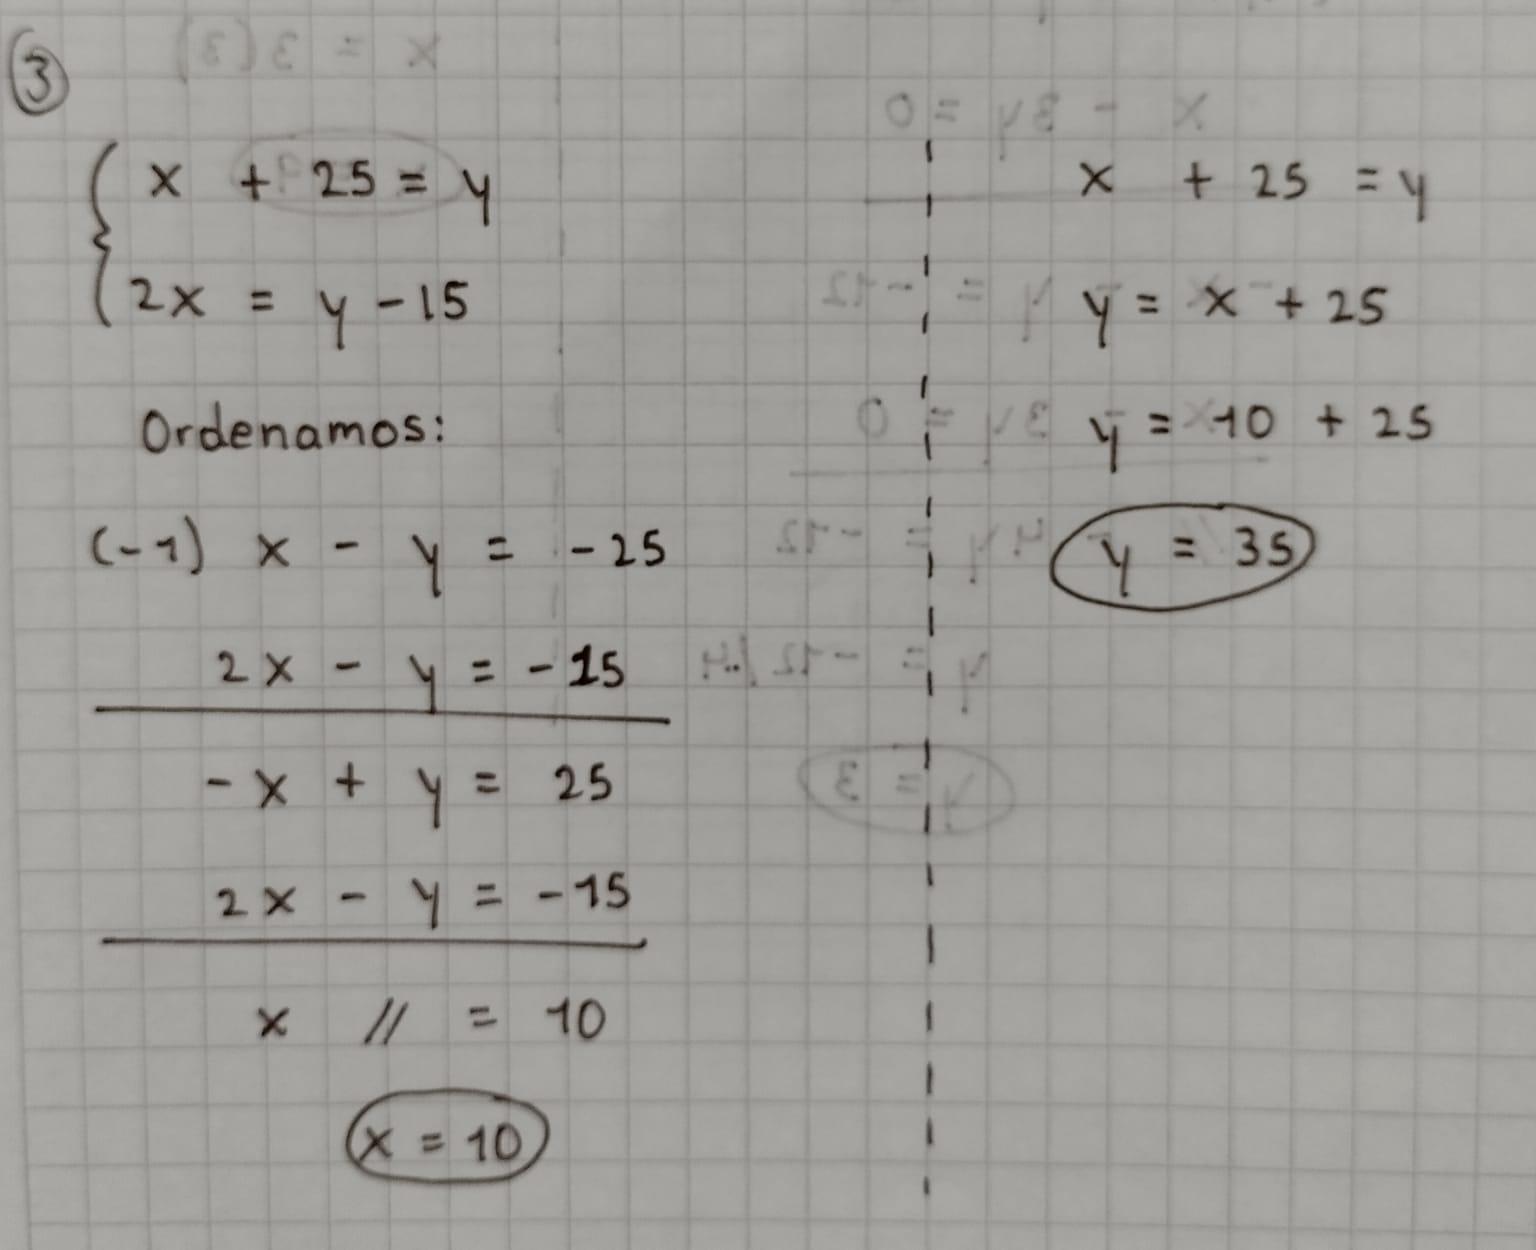 3
x + 25 = y
2x = y - 15
Ordenamos:
(-1) x - y = -25
2x - y = -15
-x + y = 25
2x - y = -15
x // = 10
x = 10
x + 25 = y
y = x + 25
y = 10 + 25
y = 35